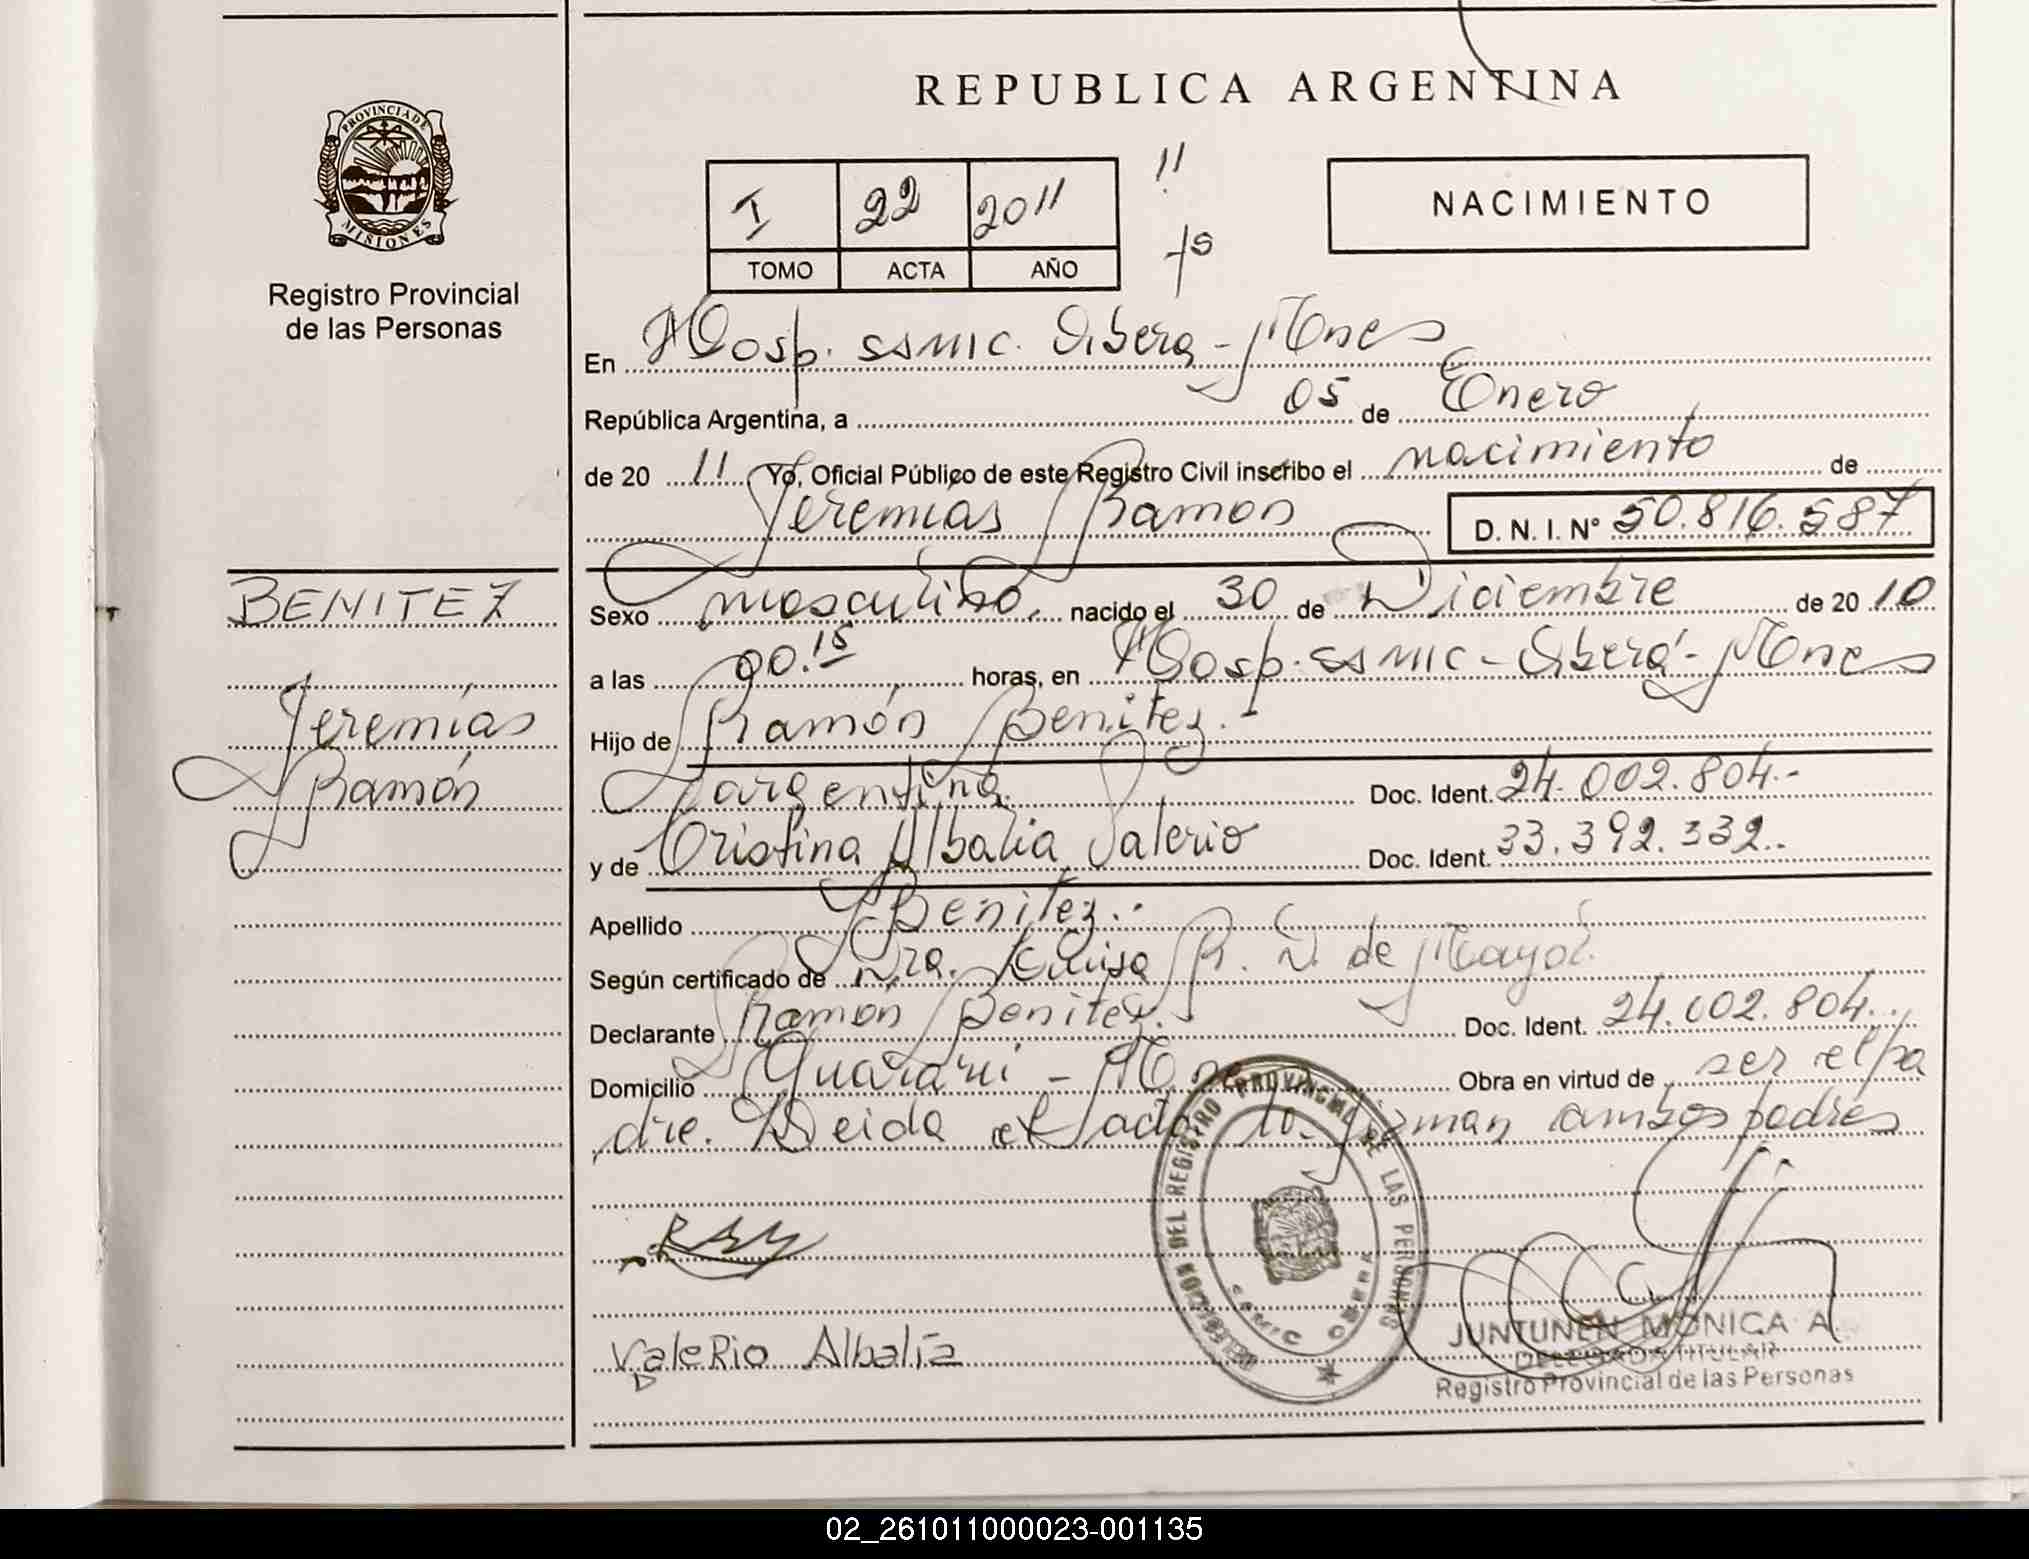 REPUBLICA ARGENTINA
PROVINCIA DE MISIONES
Registro Provincial
de las Personas
I 22 2011
TOMO ACTA AÑO
11
fs
NACIMIENTO
En Hosp. SSMIC. Oberá - Mnes
República Argentina, a 05 de Enero
de 20 11 Yo, Oficial Público de este Registro Civil inscribo el nacimiento de
Jeremías Ramón D. N. I. N° 50.816.587
BENITEZ
Jeremías
Ramón
Sexo masculino. nacido el 30 de Diciembre de 20 10
a las 00.15 horas, en Hosp. SSMIC - Oberá - Mnes
Hijo de Ramón Benitez.-
argentina. Doc. Ident. 24.002.804.-
y de Cristina Albalia Valerio Doc. Ident. 33.392.332..
Apellido Benitez.-
Según certificado de Dra. Luisa R. D. de Mayol.
Declarante Ramón Benitez. Doc. Ident. 24.002.804..
Domicilio Guaraní - Mnes Obra en virtud de ser el pa
dre. Leida el acta la firman ambos padres
ValeRio Albalia
DELEGACION DEL REGISTRO PROVINCIAL DE LAS PERSONAS
SAMIC OBERA
JUNTUNEN MONICA A.
DELEGADA TITULAR
Registro Provincial de las Personas
02_261011000023-001135